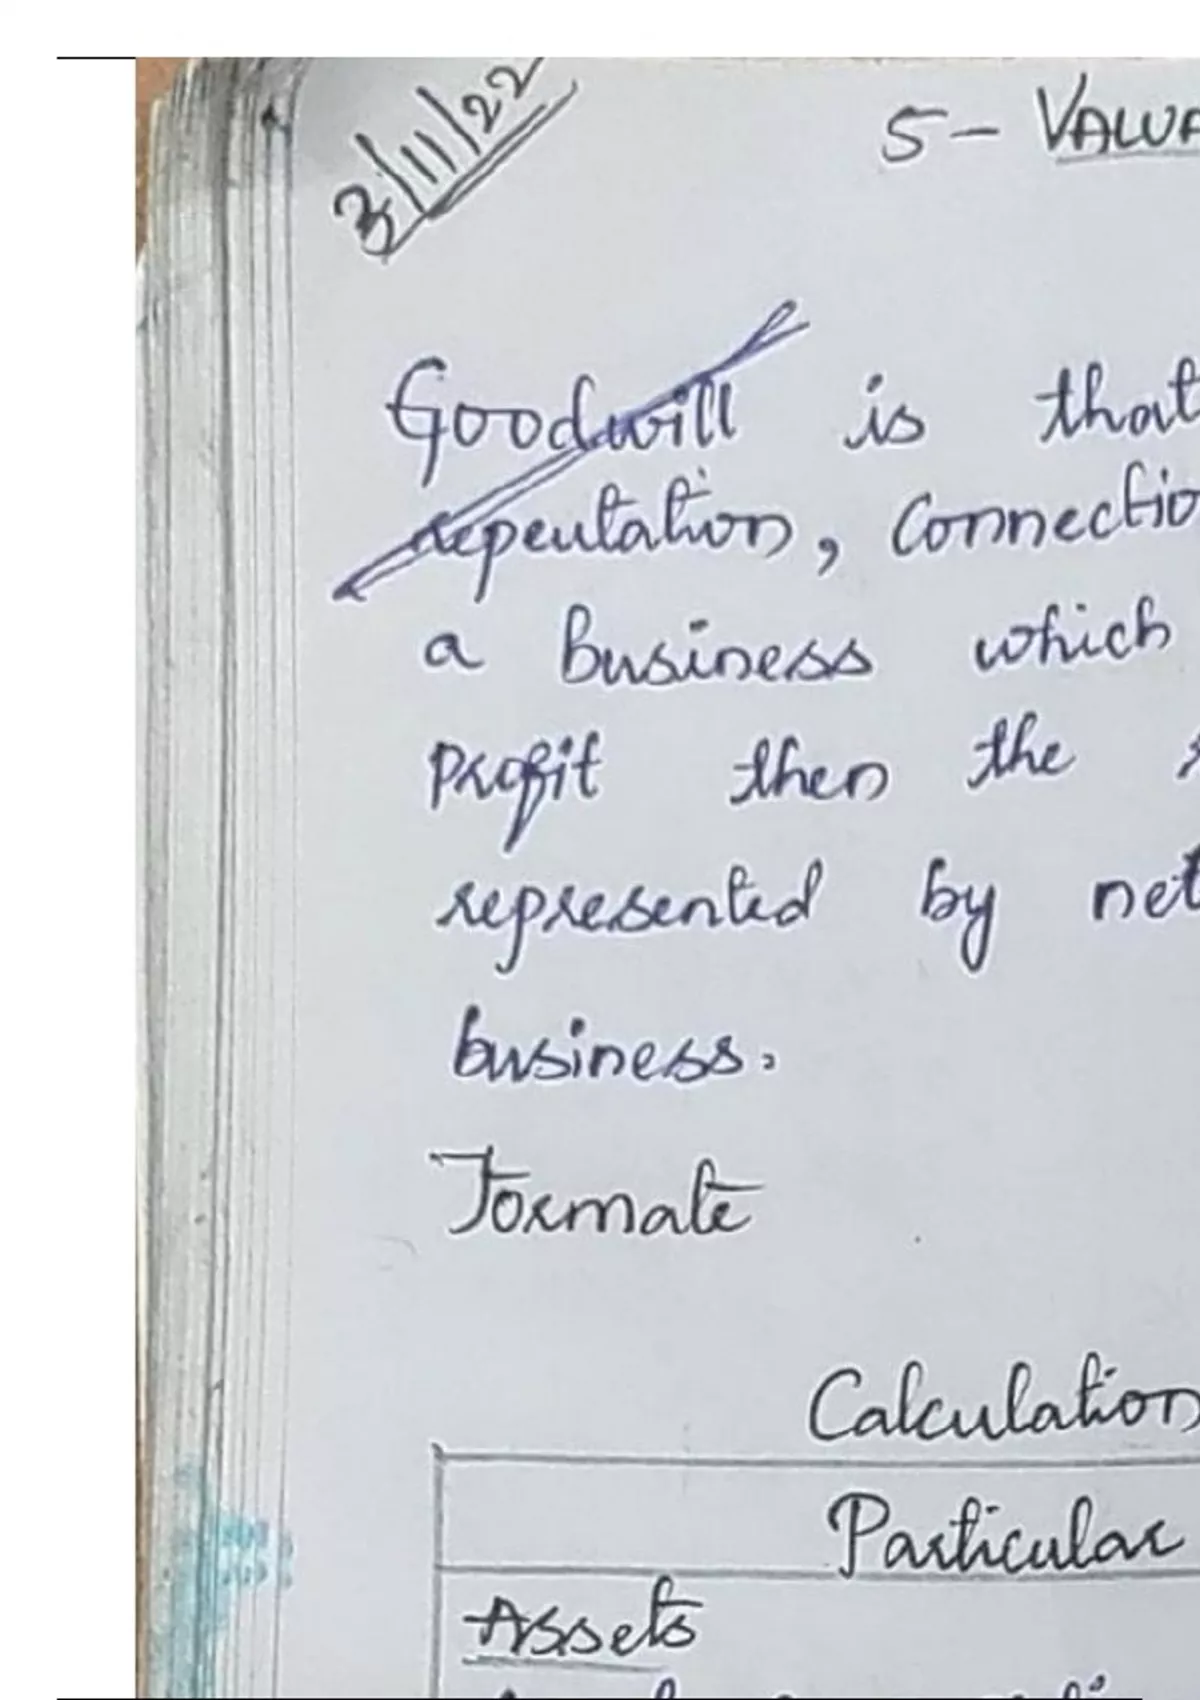 3/11/22
5- VALUA
Goodwill is that
repeutation, Connectio
a business which
profit then the
represented by net
business.
Formate
Calculation
Particular
Assets